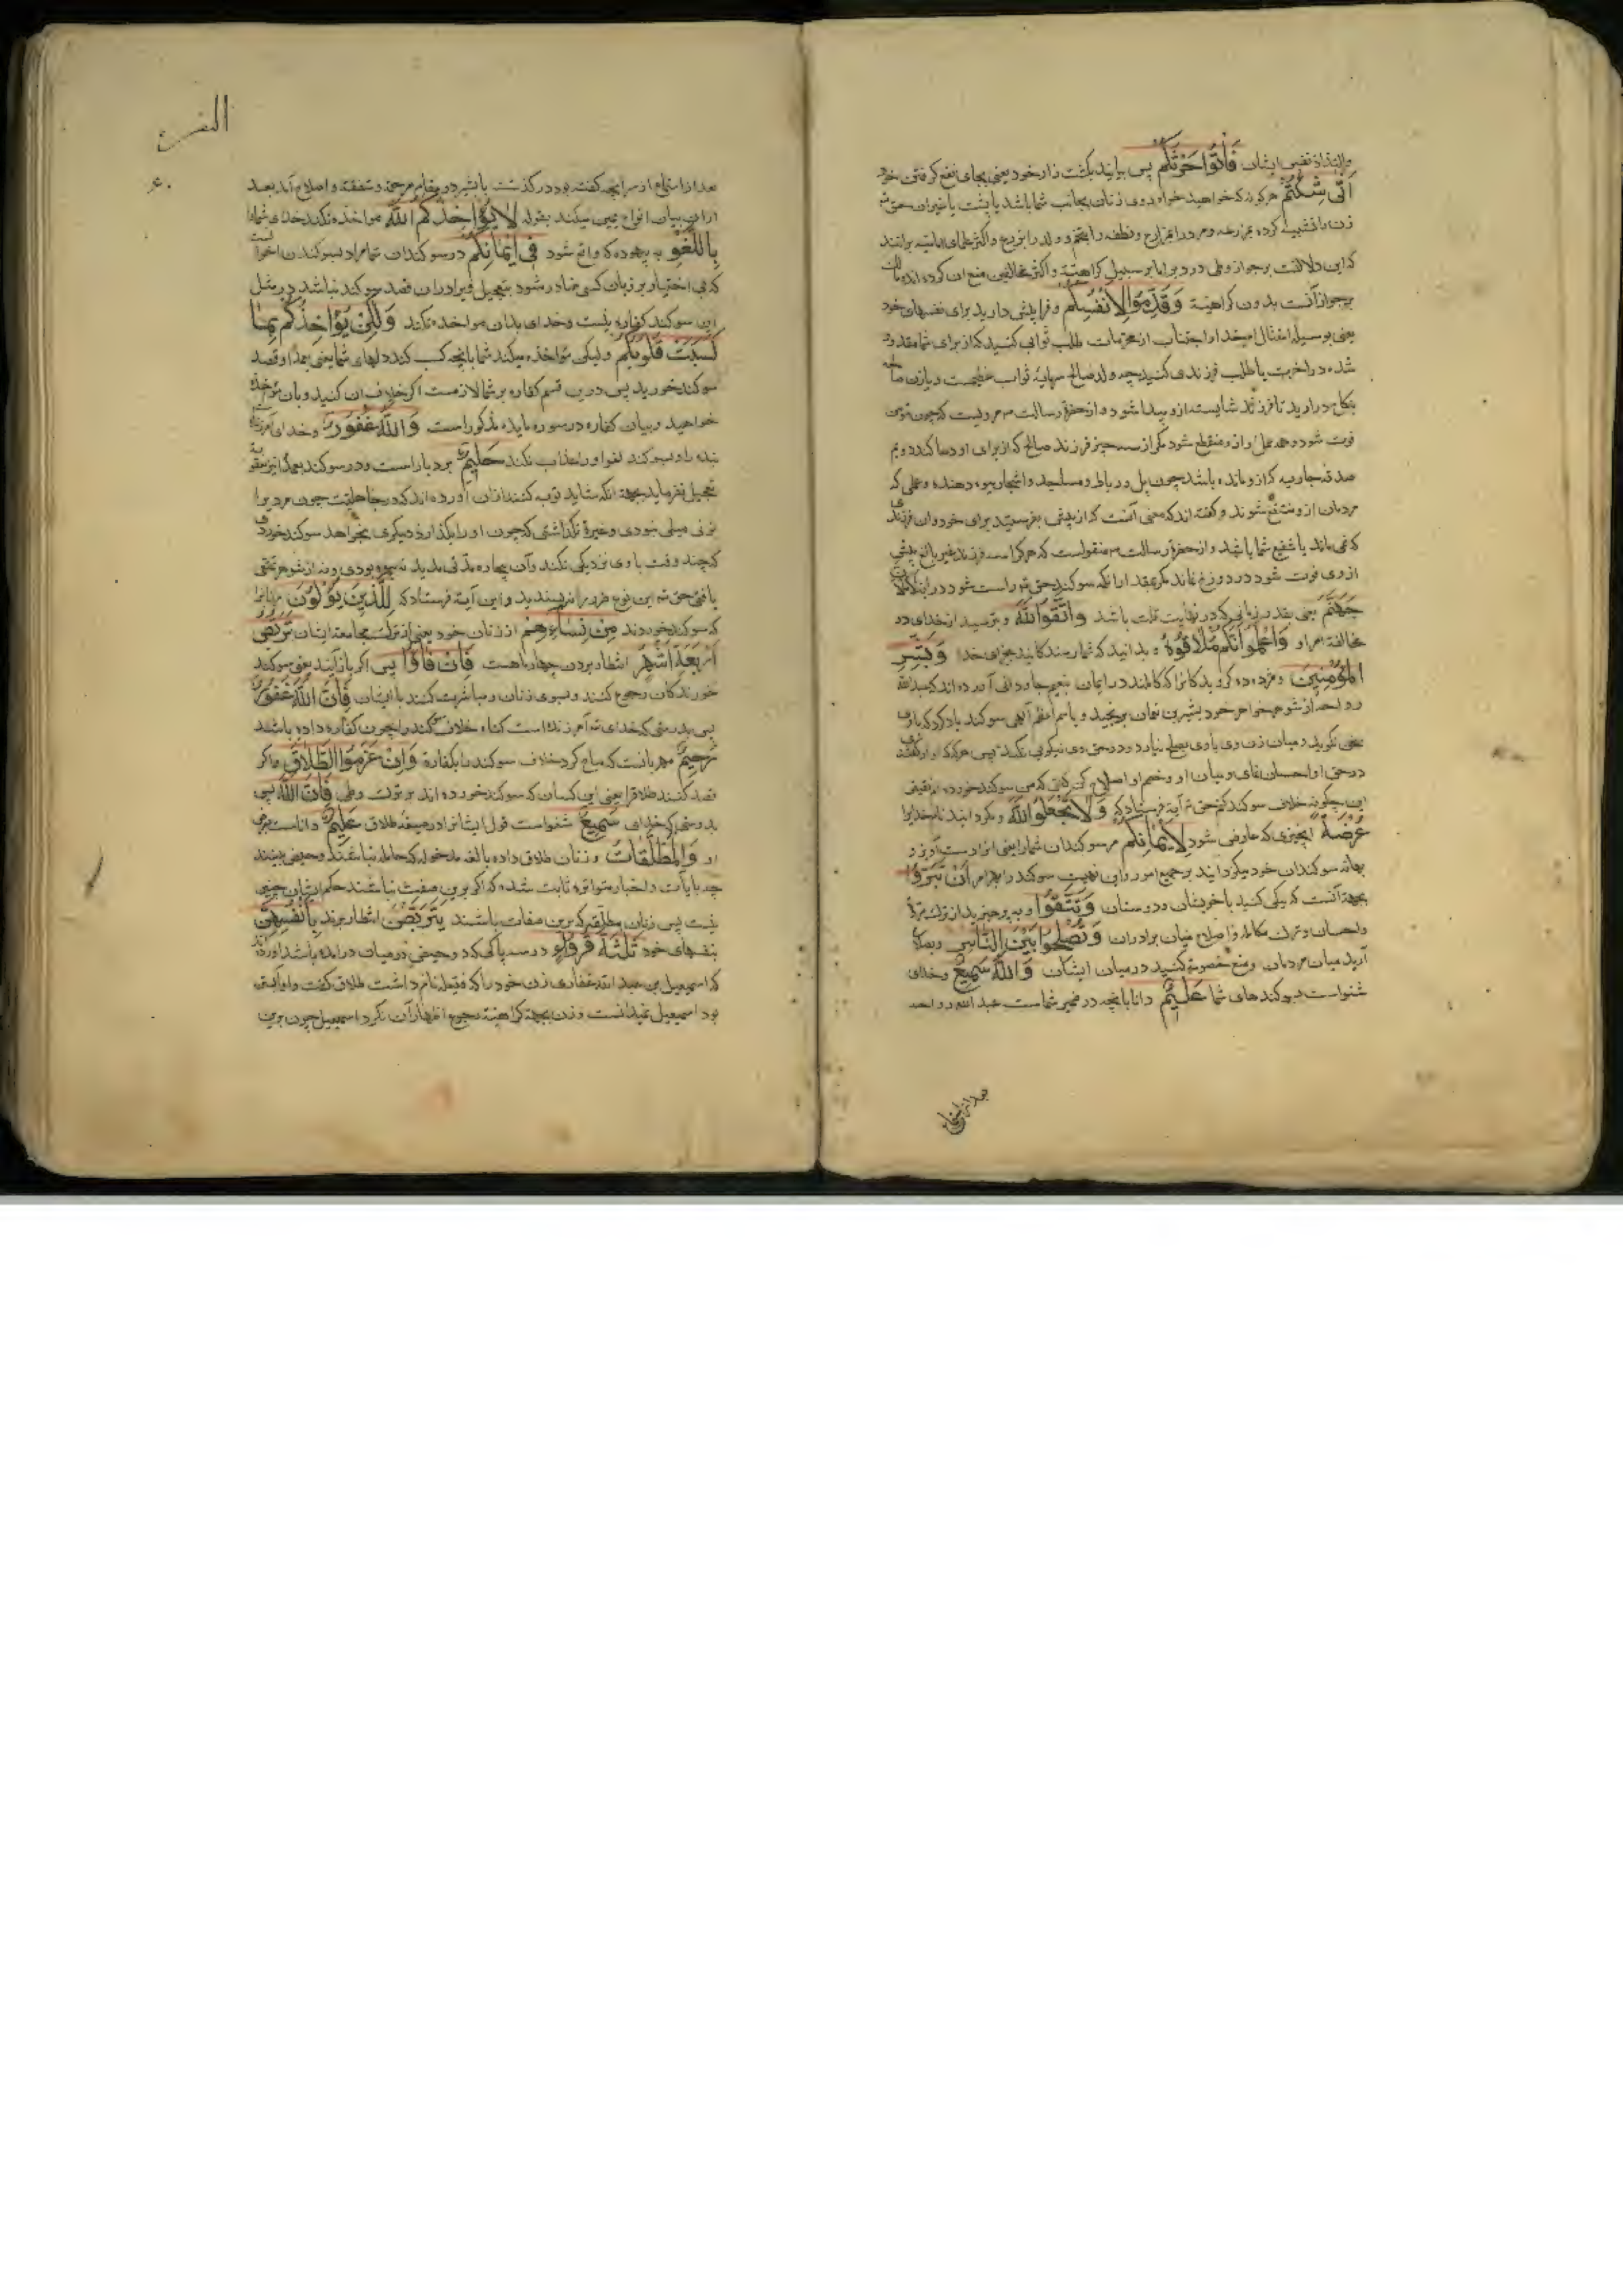 والتذاذ نفس ایشان فَأْتُوا حَرْثَكُمْ پس بیایید بکشت زار خود یعنی بجای نفع گرفتن خود
أَنَّى شِئْتُمْ هرگونه که خواهید خواه روی زنان بجانب شما باشد یا پشت
زن را تشبیه کرده بمزرعه و مرد را بمزارع و نطفه را بتخم و ولد را بزرع و اکثر علمای امامیه برانند
که این دلالت بر جواز وطی در دبر اما بر سبیل کراهیة و اکثر مخالفین منع آن کرده‌اند
بر جواز آنست بدون کراهیة وَقَدِّمُوا لِأَنْفُسِكُمْ و فرا پیش دارید برای نفسهای خود
یعنی بوسیله امتثال امر خدا و اجتناب از محرمات طلب ثوابی کنید که از برای شما مقدور
شده در آخرت یا طلب فرزندی کنید چه ولد صالح سرمایه ثواب عظیمست و یا زن صالحه
بنکاح درآرید تا فرزند شایسته ازو پیدا شود و از حضرة رسالت مرویست که چون
فوت شود همه عمل او ازو منقطع شود مگر از سه چیز فرزند صالح که از برای او دعا کند دویم
صدقه جاریه که ازو مانده باشد چون پل و رباط و مساجد و اشجار میوه دهنده و علمی که
مردمان ازو منتفع شوند و گفته‌اند که معنی آنست که از پیش بفرستید برای خود و ان فرزندی
که می‌ماند یا شفیع شما باشد و از حضرة رسالت منقولست که هرکرا سه فرزند غیر بالغ پیش
از وی فوت شود در دوزخ نماند مگر بقدر آنکه سوگند حق تع راست شود
جَهَنَّمَ یعنی بقدر زمانی که در نهایت قلت باشد وَاتَّقُوا اللَّهَ و بترسید از خدای در
مخالفة امر او وَاعْلَمُوا أَنَّكُمْ مُلَاقُوهُ و بدانید که شما رسندگانید بجزای خدا وَبَشِّرِ
الْمُؤْمِنِينَ و مژده ده گرویدگانرا که کاملند در ایمان بنعیم جاودانی آورده‌اند که عبدالله
رواحه از شوهر خواهر خود بشیر بن نعمان برنجید و باسم اعظم آلهی سوگند یاد کرد که با وی
سخن نگوید و میان زن وی با وی بصلح نیارد و در حق وی نیکویی نکند پس هرگاه که او را گفتندی
در حق او احسان نمای و میان او و خصم او اصلاح کن گفتی که من سوگند خورده‌ام
این چگونه خلاف سوگند کنم حق تع آیة فرستاد که وَلَا تَجْعَلُوا اللَّهَ و مگردانید نام خدایرا
عُرْضَةً چیزی که عارض شود لِأَيْمَانِكُمْ مر سوگندان شما را یعنی او را دست آویز و
بهانه سوگندان خود میگردانید بر جمیع امور و این نهی سوگند أَنْ تَبَرُّوا
بجهة آنست که نیکی کنید با خویشان و دوستان وَتَتَّقُوا و بپرهیزید از ترک
واحسان و ترک مکالمه و اصلاح میان برادران وَتُصْلِحُوا بَيْنَ النَّاسِ و بصلاح
آرید میان مردمان و منع خصومة کنید در میان ایشان وَاللَّهُ سَمِيعٌ و خدای
شنواست سوگندهای شما عَلِيمٌ دانا بآنچه در ضمیر شماست عبدالله رواحه
بعد از استماع
البقرة
۶۰
بعد از استماع از سر آنچه گفته بود درگذشت با بشیر در مقام مرحمة و شفقة و اصلاح آمد بعد
ازان بیان انواع یمین میکند بقوله لَا يُؤَاخِذُكُمُ اللَّهُ مواخذه نکند خدای شما را
بِاللَّغْوِ به بیهوده که واقع شود فِي أَيْمَانِكُمْ در سوگندان شما مراد سوگندیست
که بی اختیار بر زبان کسی صادر شود بتعجیل و مراد ازان قصد سوگند نباشد در مثل
این سوگند کفاره نیست و خدای بدان مواخذه نکند وَلَكِنْ يُؤَاخِذُكُمْ بِمَا
كَسَبَتْ قُلُوبُكُمْ ولیکن مؤاخذه میکند شما را بآنچه کسب کند دلهای شما یعنی بعمد و قصد
سوگند خورید پس درین قسم کفاره بر شما لازمست اگر خلاف آن کنید و بآن مؤاخذه
خواهید و بیان کفاره در سوره مایده مذکور است وَاللَّهُ غَفُورٌ و خدای آمرزنده
بنده را و بسوگند لغو او را عذاب نکند حَلِيمٌ بردبار است و در سوگند بعمد نیز بعقوبة
تعجیل نفرماید بجهة آنکه شاید توبه کنند ازان آورده‌اند که در جاهلیت چون مرد را
بزنی میلی نبودی و غیرة نگذاشتی که چون او را بگذارد دیگری بخواهد سوگند خوردی
که چند وقت با وی نزدیکی نکند و آن بیچاره مدتی مدید نه بیوه بودی و نه از شوهر تمتعی
یافتی حق تع این نوع ضرر را نپسندید و این آیة فرستاد که لِلَّذِينَ يُؤْلُونَ مر آنانرا
که سوگند خوردند مِنْ نِسَائِهِمْ از زنان خود یعنی از ترک مجامعة ایشان تَرَبُّصُ
أَرْبَعَةِ أَشْهُرٍ انتظار بردن چهار ماهست فَإِنْ فَاءُوا پس اگر بازآیند یعنی سوگند
خورندگان رجوع کنند و بسوی زنان و مباشرت کنند با ایشان فَإِنَّ اللَّهَ غَفُورٌ
پس بدرستی که خدای تع آمرزنده است گناه خلاف سوگند را چون کفاره داده باشند
رَحِيمٌ مهربانست که مباح کرد خلاف سوگند را بکفارة وَإِنْ عَزَمُوا الطَّلَاقَ و اگر
قصد کنند طلاق را یعنی این کسان که سوگند خورده‌اند بر ترک وطی فَإِنَّ اللَّهَ پس
بدرستی که خدای سَمِيعٌ شنواست قول ایشانرا در صیغه طلاق عَلِيمٌ داناست
او وَالْمُطَلَّقَاتُ و زنان طلاق داده بالغه مدخوله که حامله نباشند و حیض بینند
چه بآیات و اخبار متواتره ثابت شده که اگر برین صفت نباشند حکم ایشان چنین
نیست پس زنان مطلقه که برین صفات باشند يَتَرَبَّصْنَ انتظار برند بِأَنْفُسِهِنَّ
بنفسهای خود ثَلَاثَةَ قُرُوءٍ در سه پاکی که دو حیض در میان درآمده باشد آورده‌اند
که اسمعیل بن عبدالله غفاری زن خود را که قتیله نام داشت طلاق گفت و او آبستن
بود اسمعیل نمیدانست و زن بجهة کراهیة رجوع اظهار آن نکرد اسمعیل چون برین